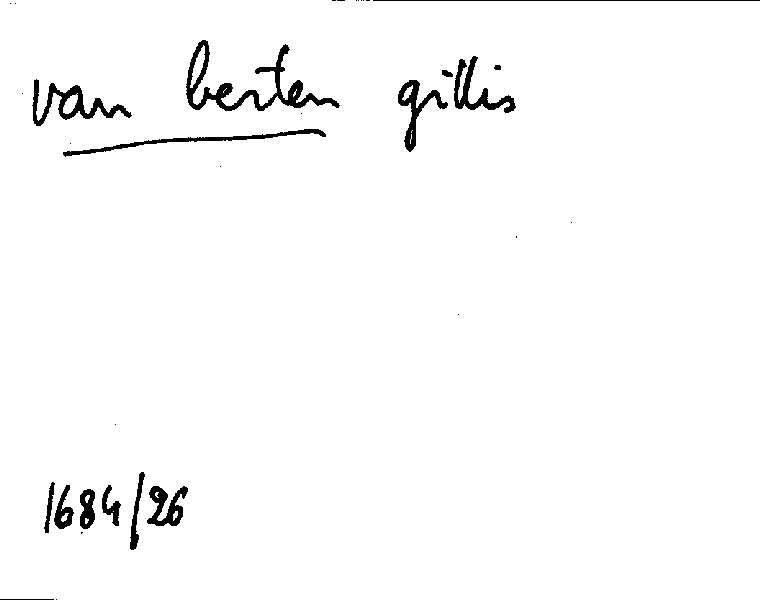 van berten gillis
1684/26